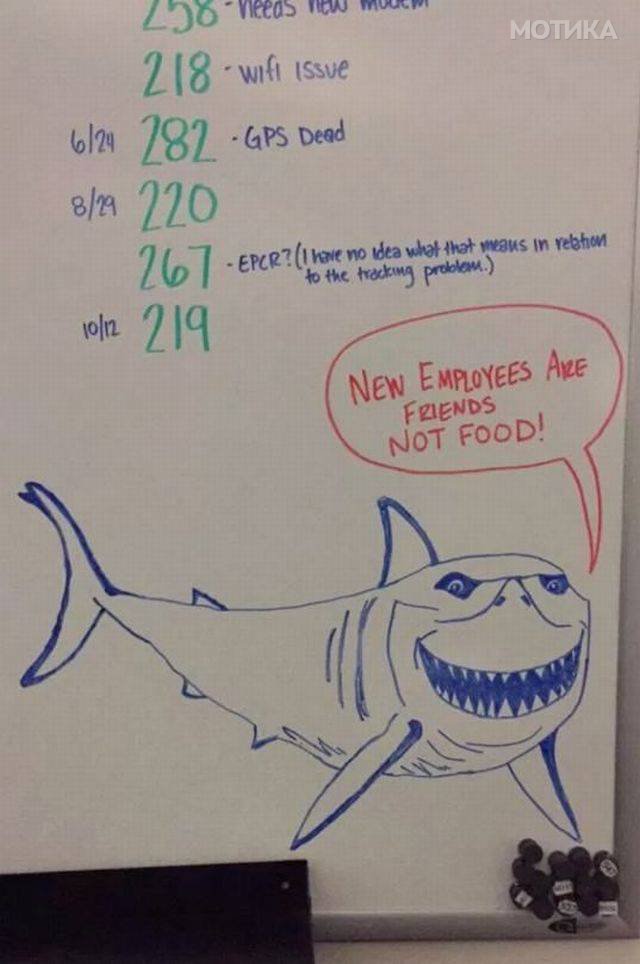 258 - Needs New Modem
МОТИКА
218 - wifi Issue
6/24 282 - GPS Dead
8/29 220
267 - EPCR? (I have no idea what that means in relation
to the tracking problem.)
10/12 219
NEW EMPLOYEES ARE
FRIENDS
NOT FOOD!